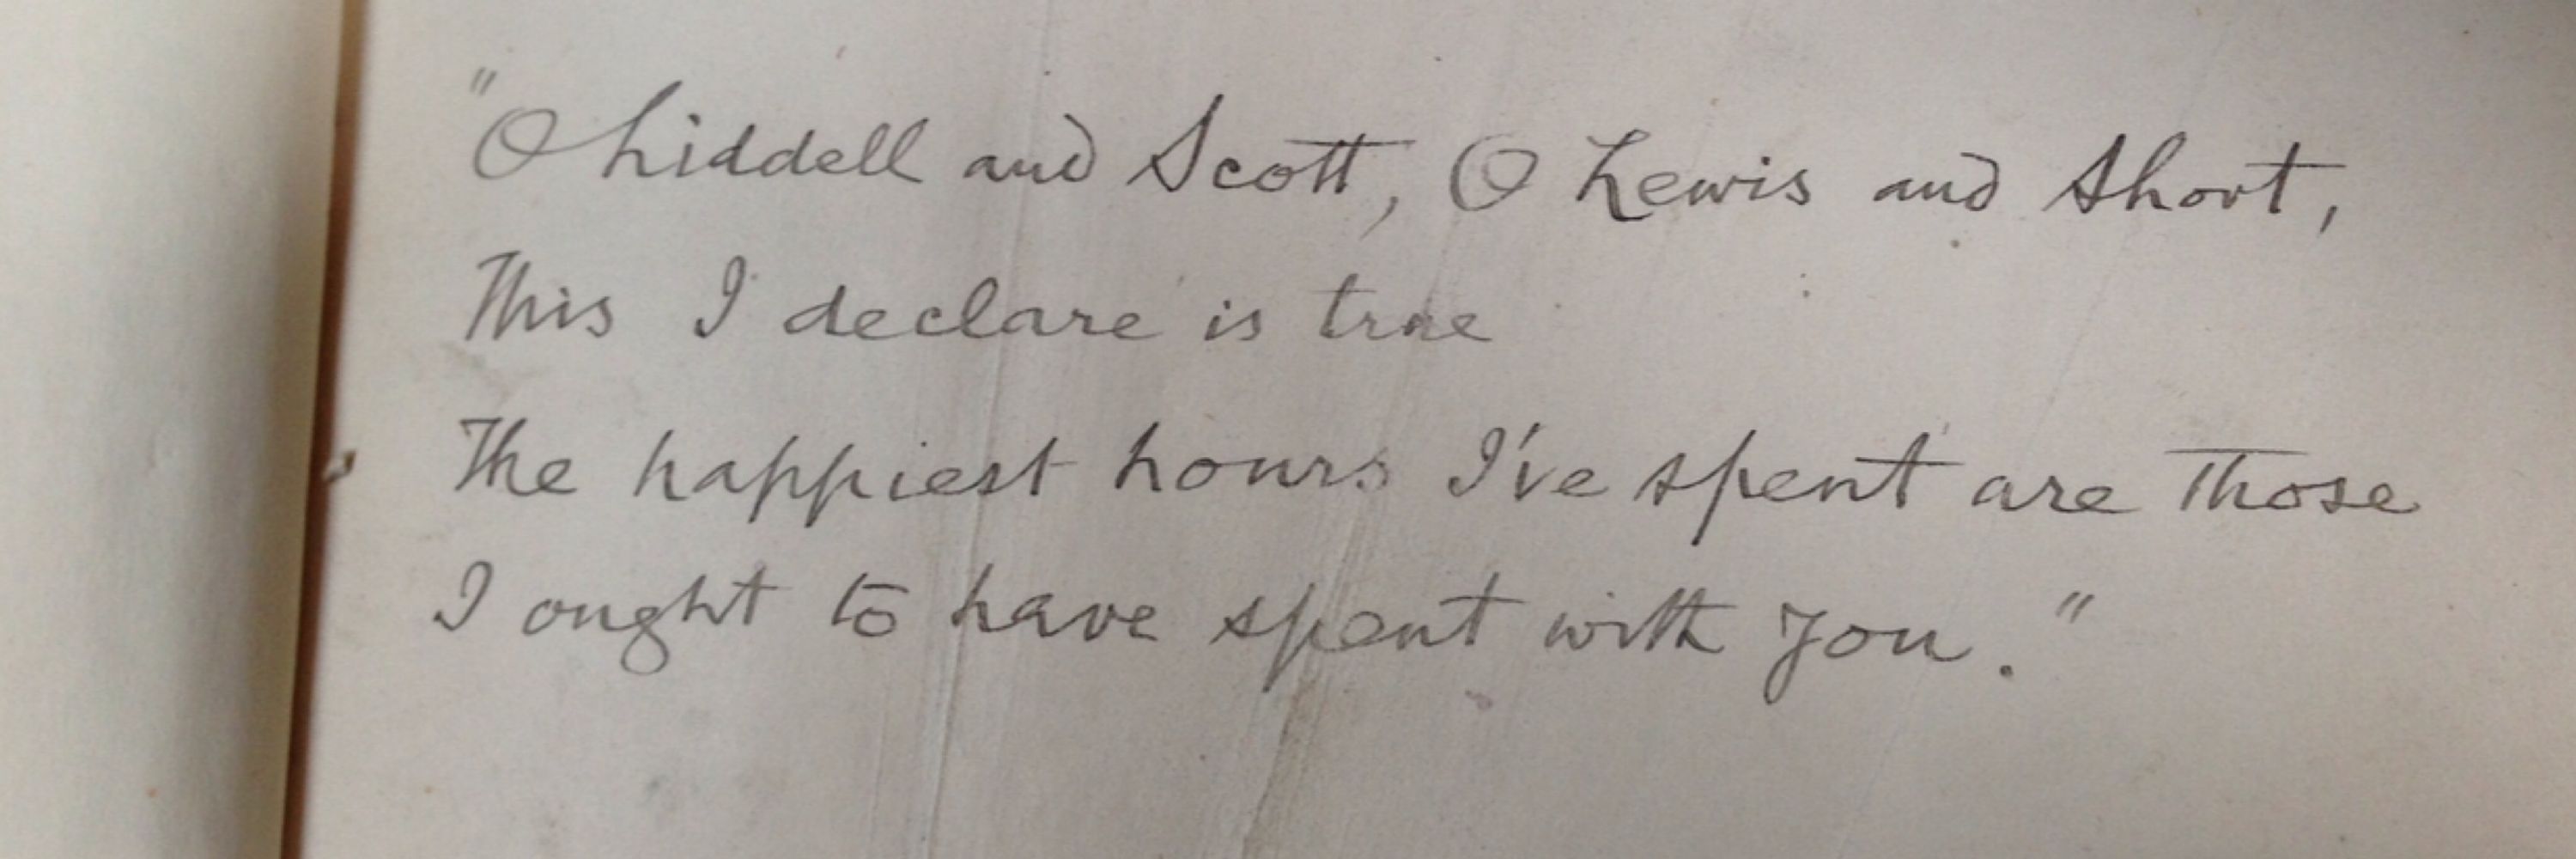 "O Liddell and Scott, O Lewis and Short,
This I declare is true
The happiest hours I've spent are those
I ought to have spent with you."